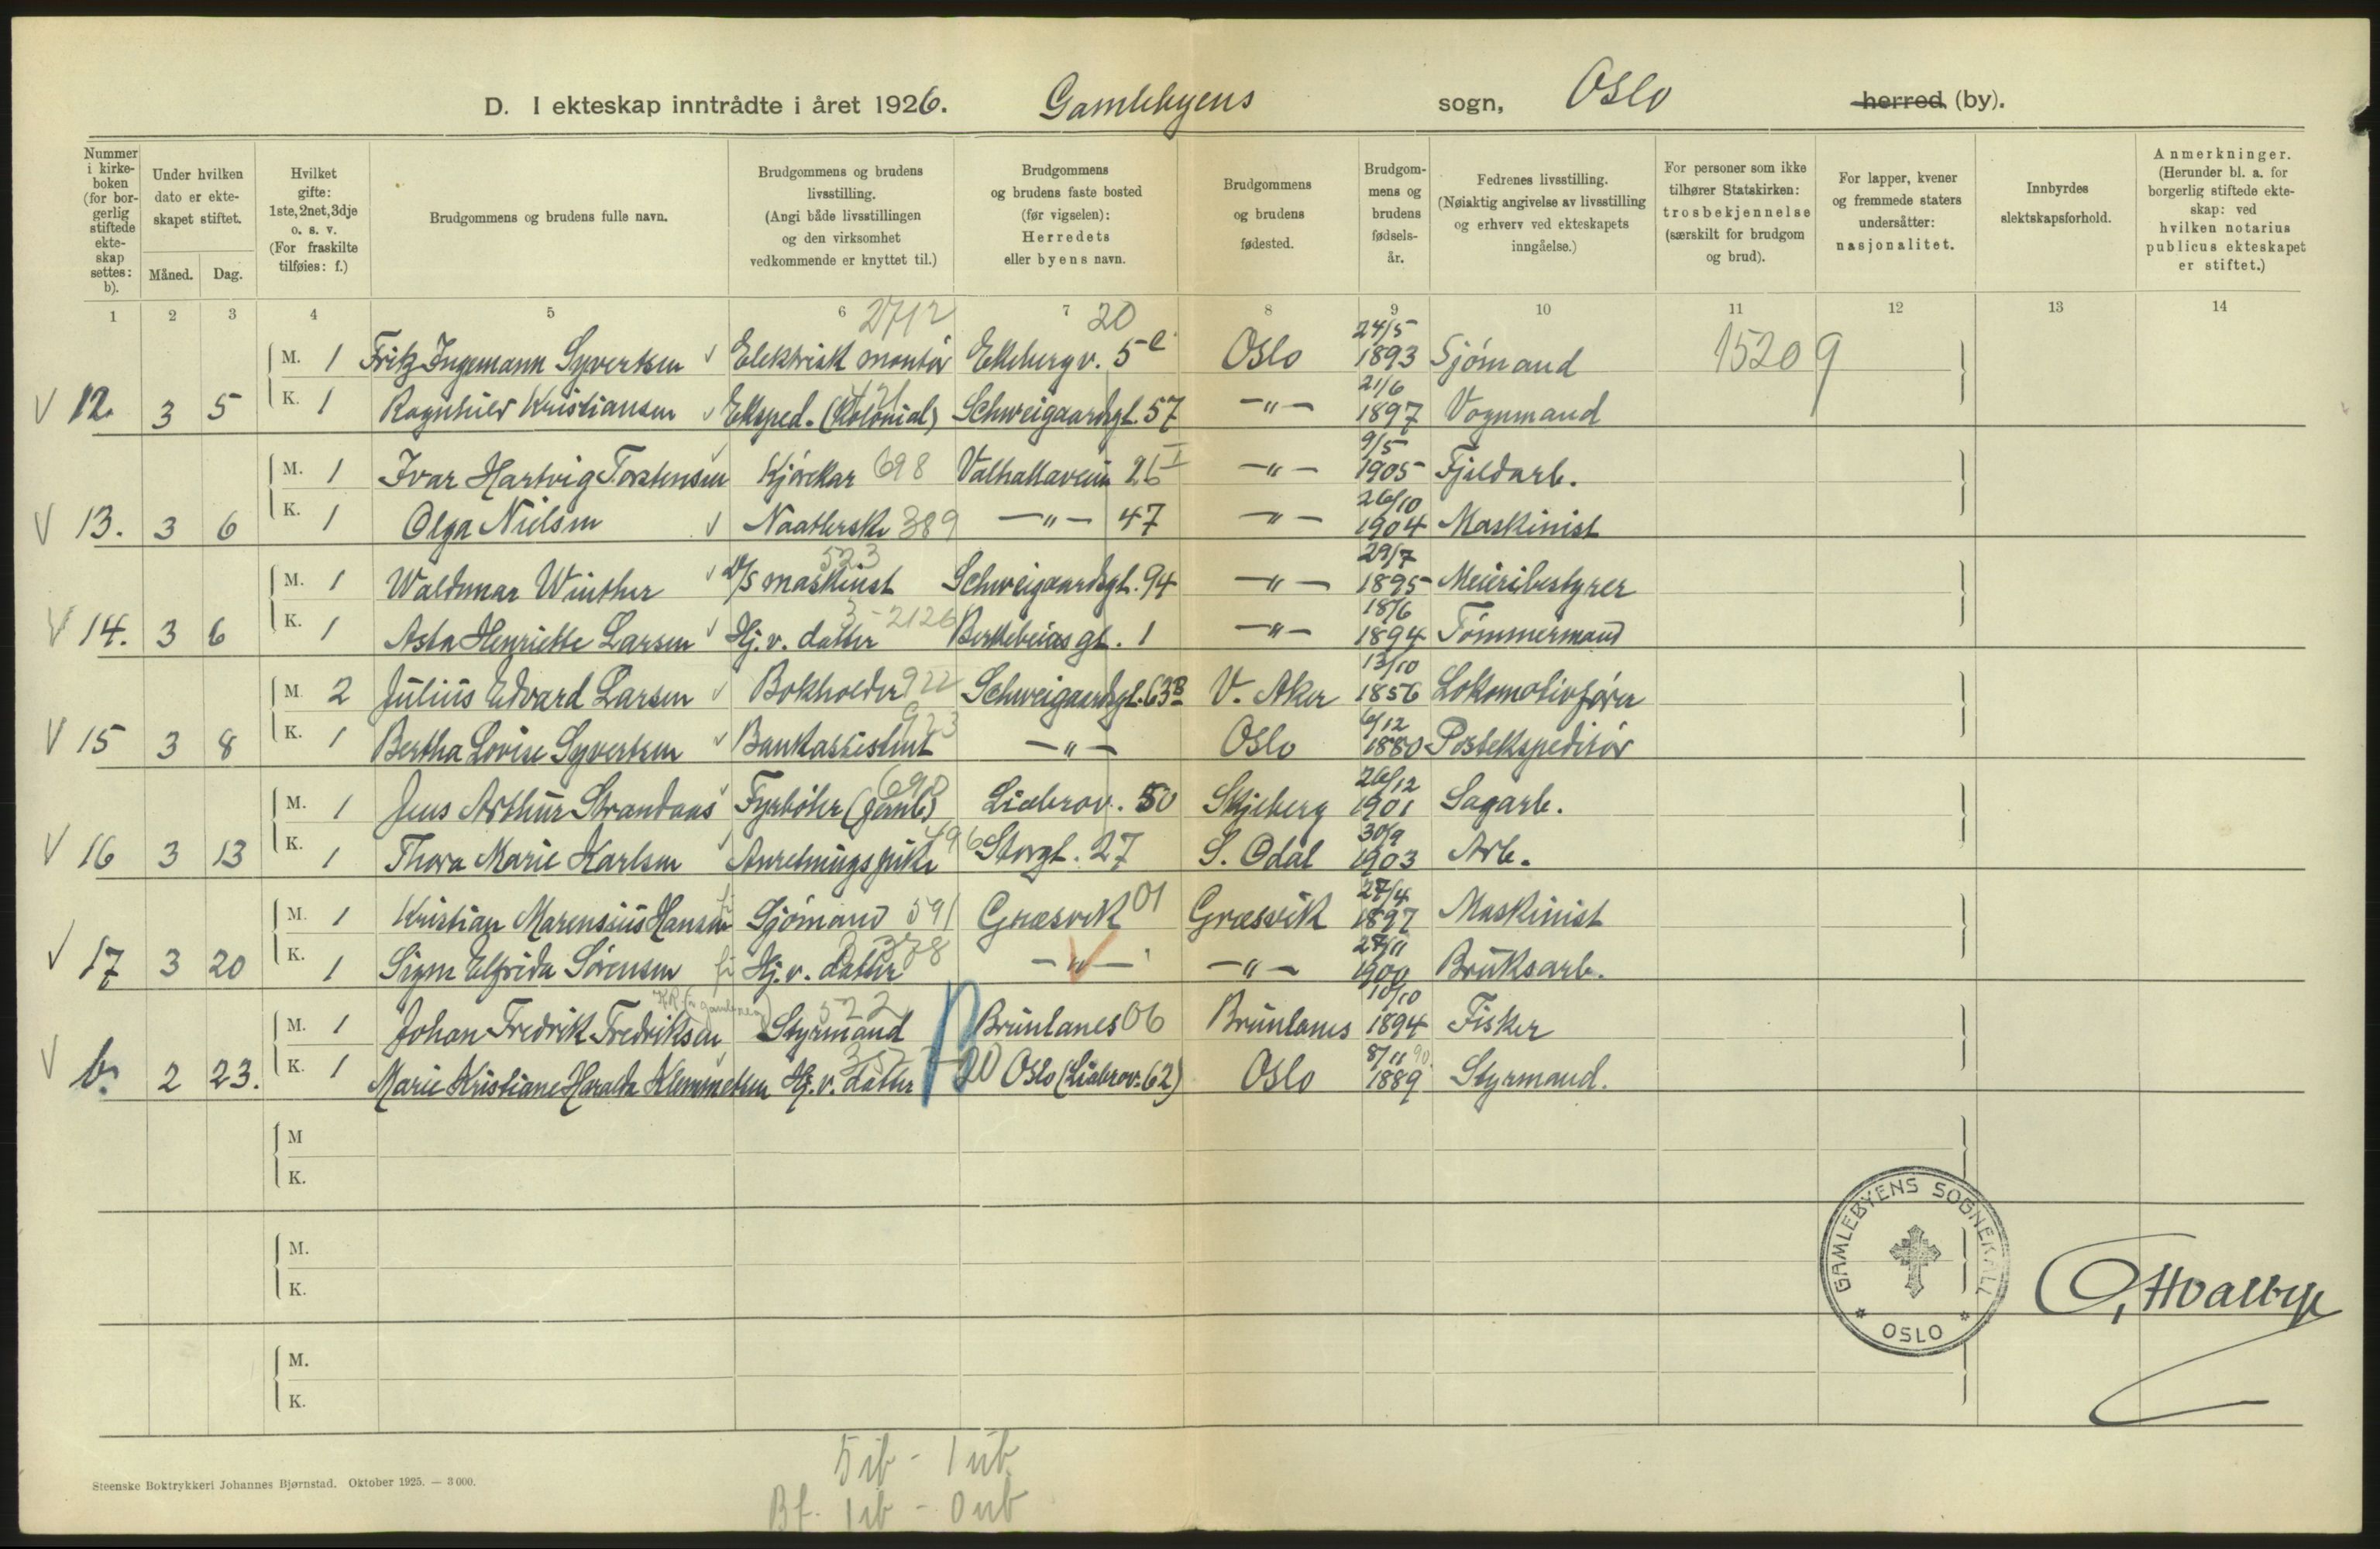 D. I ekteskap inntrådte i året 1926. Gamlebyens sogn, Oslo herred (by).
Nummer i kirke-boken (for bor-gerlig stiftede ekte-skap settes: b).
Under hvilken dato er ekte-skapet stiftet.
Måned. Dag.
Hvilket gifte: 1ste, 2net, 3dje o. s. v. (For fraskilte tilføies: f.)
Brudgommens og brudens fulle navn.
Brudgommens og brudens livsstilling. (Angi både livsstillingen og den virksomhet vedkommende er knyttet til.)
Brudgommens og brudens faste bosted (før vigselen): Herredets eller byens navn.
Brudgommens og brudens fødested.
Brudgom-mens og brudens fødsels-år.
Fedrenes livsstilling. (Nøiaktig angivelse av livsstilling og erhverv ved ekteskapets inngåelse.)
For personer som ikke tilhører Statskirken: trosbekjennelse (særskilt for brudgom og brud).
For lapper, kvener og fremmede staters undersåtter: nasjonalitet.
Innbyrdes slektskapsforhold.
Anmerkninger. (Herunder bl. a. for borgerlig stiftede ekte-skap: ved hvilken notarius publicus ekteskapet er stiftet.)
1 2 3 4 5 6 7 8 9 10 11 12 13 14
2712 20
M. 1 Fritz Ingemann Syvertsen Elektrisk montör Ekebergv. 5 e Oslo 24/5 1893 Sjömand 15209
V 12. 3 5 K. 1 Ragnhild Kristiansen Eksped. (Kolonial) Schweigaardsgt. 57 -"- 21/6 1897 Vognmand
M. 1 Ivar Hartvig Torstensen Kjörekar 698 Valhallaveien 26 I -"- 9/5 1905 Fjeldarb.
V 13. 3 6 K. 1 Olga Nielsen Naatlerske 389 -"- 47 -"- 26/10 1904 Maskinist
M. 1 Waldemar Winther D/S maskinist 523 Schweigaardsgt. 94 -"- 29/7 1895 Meieribestyrer
V 14. 3 6 K. 1 Asta Henriette Larsen Hj. v. datter 3-2126 Birkebeinsgt. 1 -"- 18/6 1894 Tömmermand
M. 2 Julius Edvard Larsen Bokholder 922 Schweigaardsgt. 63B V. Aker 13/10 1856 Lokomotivförer
V 15 3 8 K. 1 Bertha Lovise Syvertsen Bankassistent 923 -"- Oslo 6/12 1880 Postekspeditör
M. 1 Jens Arthur Strandaas Fyrböter (jernb) 698 Liabrov. 50 Skjeberg 26/12 1901 Sagarb.
V 16 3 13 K. 1 Thora Marie Karlsen Anretningspike 496 Storgt. 27 S. Odal 30/9 1903 Arb.
M. 1 Kristian Marensius Hansen Sjömand 591 Græsvik 01 Græsvik 27/4 1897 Maskinist
V 17 3 20 K. 1 Signe Elfrida Sörensen Hj. v. datter -"- -"- 27/11 1900 Bruksarb.
M. 1 Johan Fredrik Fredriksen Styrmand 522 Brunlanes 06 Brunlanes 10/10 1894 Fisker
V b. 2 23. K. 1 Marie Kristiane Haralda Klemmetsen Hj. v. datter 20 Oslo (Liabrov. 62) Oslo 8/11 90 1889 Styrmand.
M
K.
M.
K.
M.
K.
GAMLEBYENS SOGNEKALL
* OSLO *
Steenske Boktrykkeri Johannes Bjørnstad. Oktober 1925. — 3 000.
5 ib - 1 ub
Bf. 1 ib - 0 ub